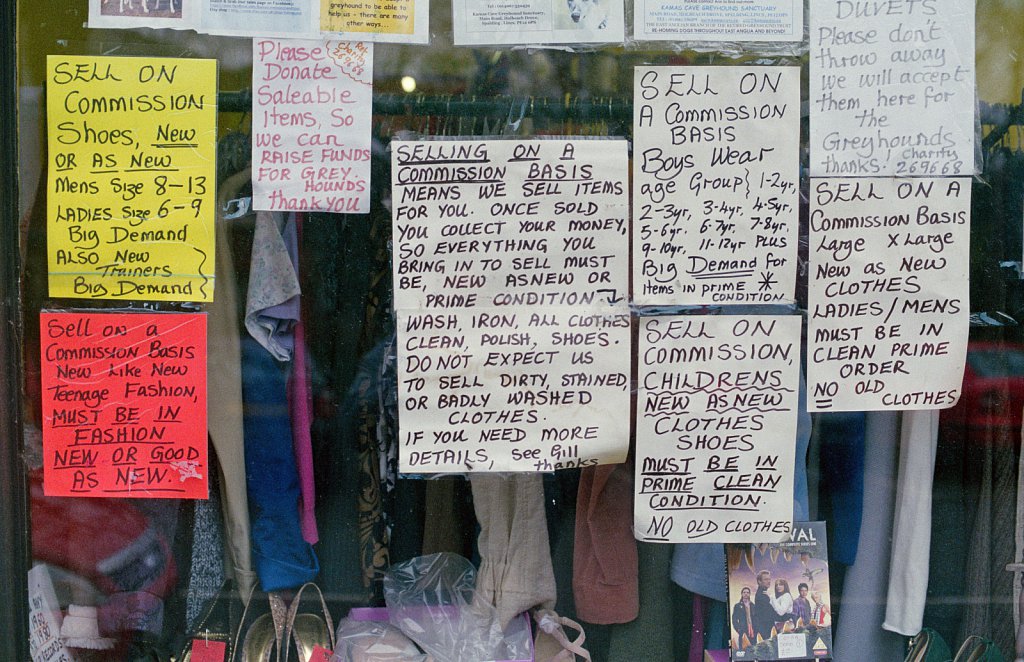 greyhound to
help us - there are many
other ways...
KAMAS CAVE GREYHOUND SANCTUARY
RE-HOMING DOGS THROUGHOUT EAST ANGLIA AND BEYOND!
SELL ON
COMMISSION
Shoes, New
OR AS New
Mens Size 8-13
LADIES Size 6-9
Big Demand
ALSO New
Trainers
Big Demand
Sell on a
Commission Basis
New Like New
Teenage Fashion,
MUST BE IN
FASHION
NEW OR GOOD
AS NEW.
Please
Donate
Saleable
Items, So
we can
RAISE FUNDS
FOR GREY.
HOUNDS
thank you
269668
SELLING ON A
COMMISSION BASIS
MEANS WE SELL ITEMS
FOR YOU. ONCE SOLD
YOU COLLECT YOUR MONEY,
SO EVERYTHING YOU
BRING IN TO SELL MUST
BE, NEW ASNEW OR
PRIME CONDITION
WASH, IRON, ALL CLOTHES
CLEAN, POLISH, SHOES.
DO NOT EXPECT US
TO SELL DIRTY, STAINED,
OR BADLY WASHED
CLOTHES.
IF YOU NEED MORE
DETAILS, see Gill
thanks
SELL ON
A COMMISSION
BASIS
Boys Wear
age Group} 1-2yr,
2-3yr, 3-4yr, 4-5yr,
5-6yr, 6-7yr, 7-8yr,
9-10yr, 11-12yr PLUS
Big Demand for
items in prime *
CONDITION
SELL ON
COMMISSION,
CHILDRENS
NEW ASNEW
CLOTHES
SHOES
MUST BE IN
PRIME CLEAN
CONDITION.
NO OLD CLOTHES
DUVETS
Please don't
throw away
we will accept
them here for
the
Greyhounds
thanks. Charity
269668
SELL ON A
Commission Basis
Large X Large
New as New
CLOTHES
LADIES/MENS
MUST BE IN
CLEAN PRIME
ORDER
NO OLD
CLOTHES